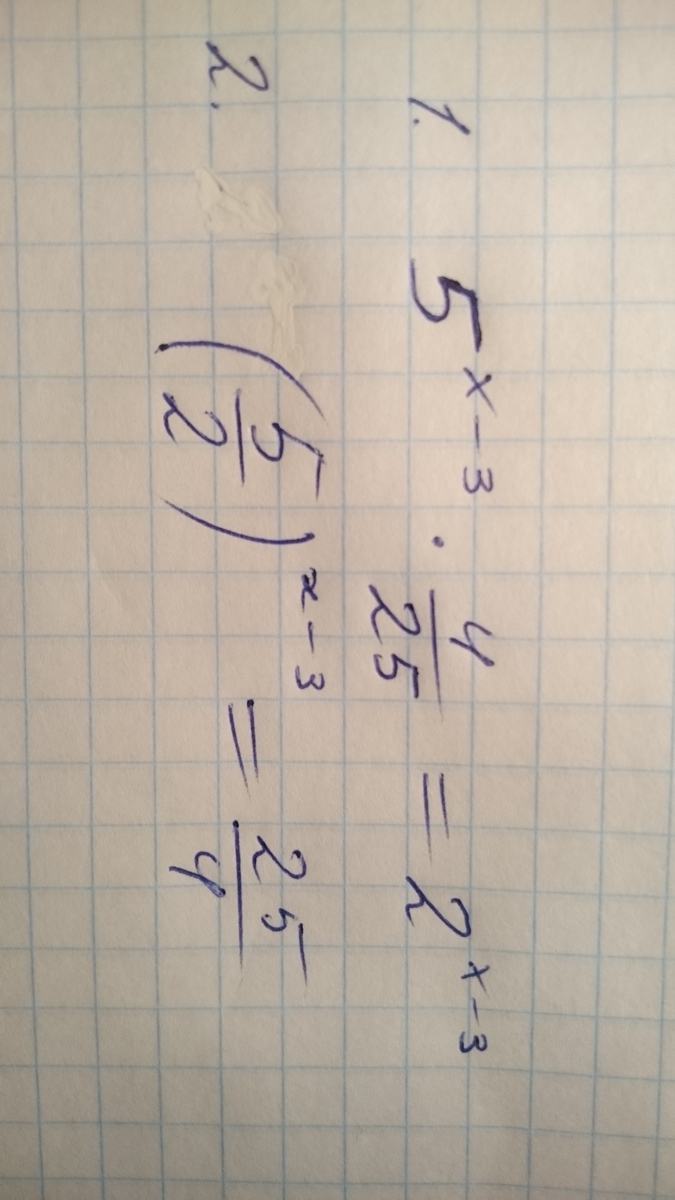 1. 5^{x-3} · \frac{4}{25} = 2^{x-3}
2. (\frac{5}{2})^{x-3} = \frac{25}{4}